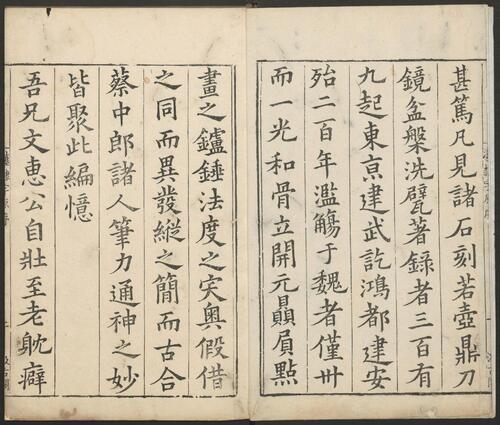 甚篤凡見諸石刻若壺鼎刀
鏡盆槃洗甓著錄者三百有
九起東京建武訖鴻都建安
殆二百年濫觴于魏者僅卅
而一光和骨立開元贔屓點
畫之鑪錘法度之突奧假借
之同而異發縱之簡而古合
蔡中郎諸人筆力通神之妙
皆聚此編憶
吾兄文惠公自壯至老躭癖